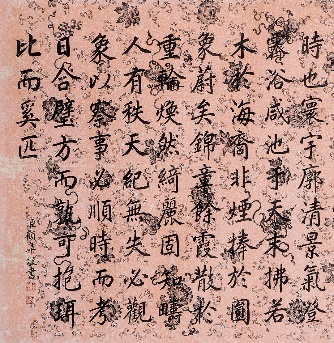 時也寰宇廓清景氣登
霽浴咸池于末末拂若
木於海裔非煙捧於圓
象蔚矣錦章餘霞散於
重輪煥然綺麗固知疇
人有秩天紀無失必觀
象以察事必順時而考
日合璧方而孰可抱珥
比而奚匹